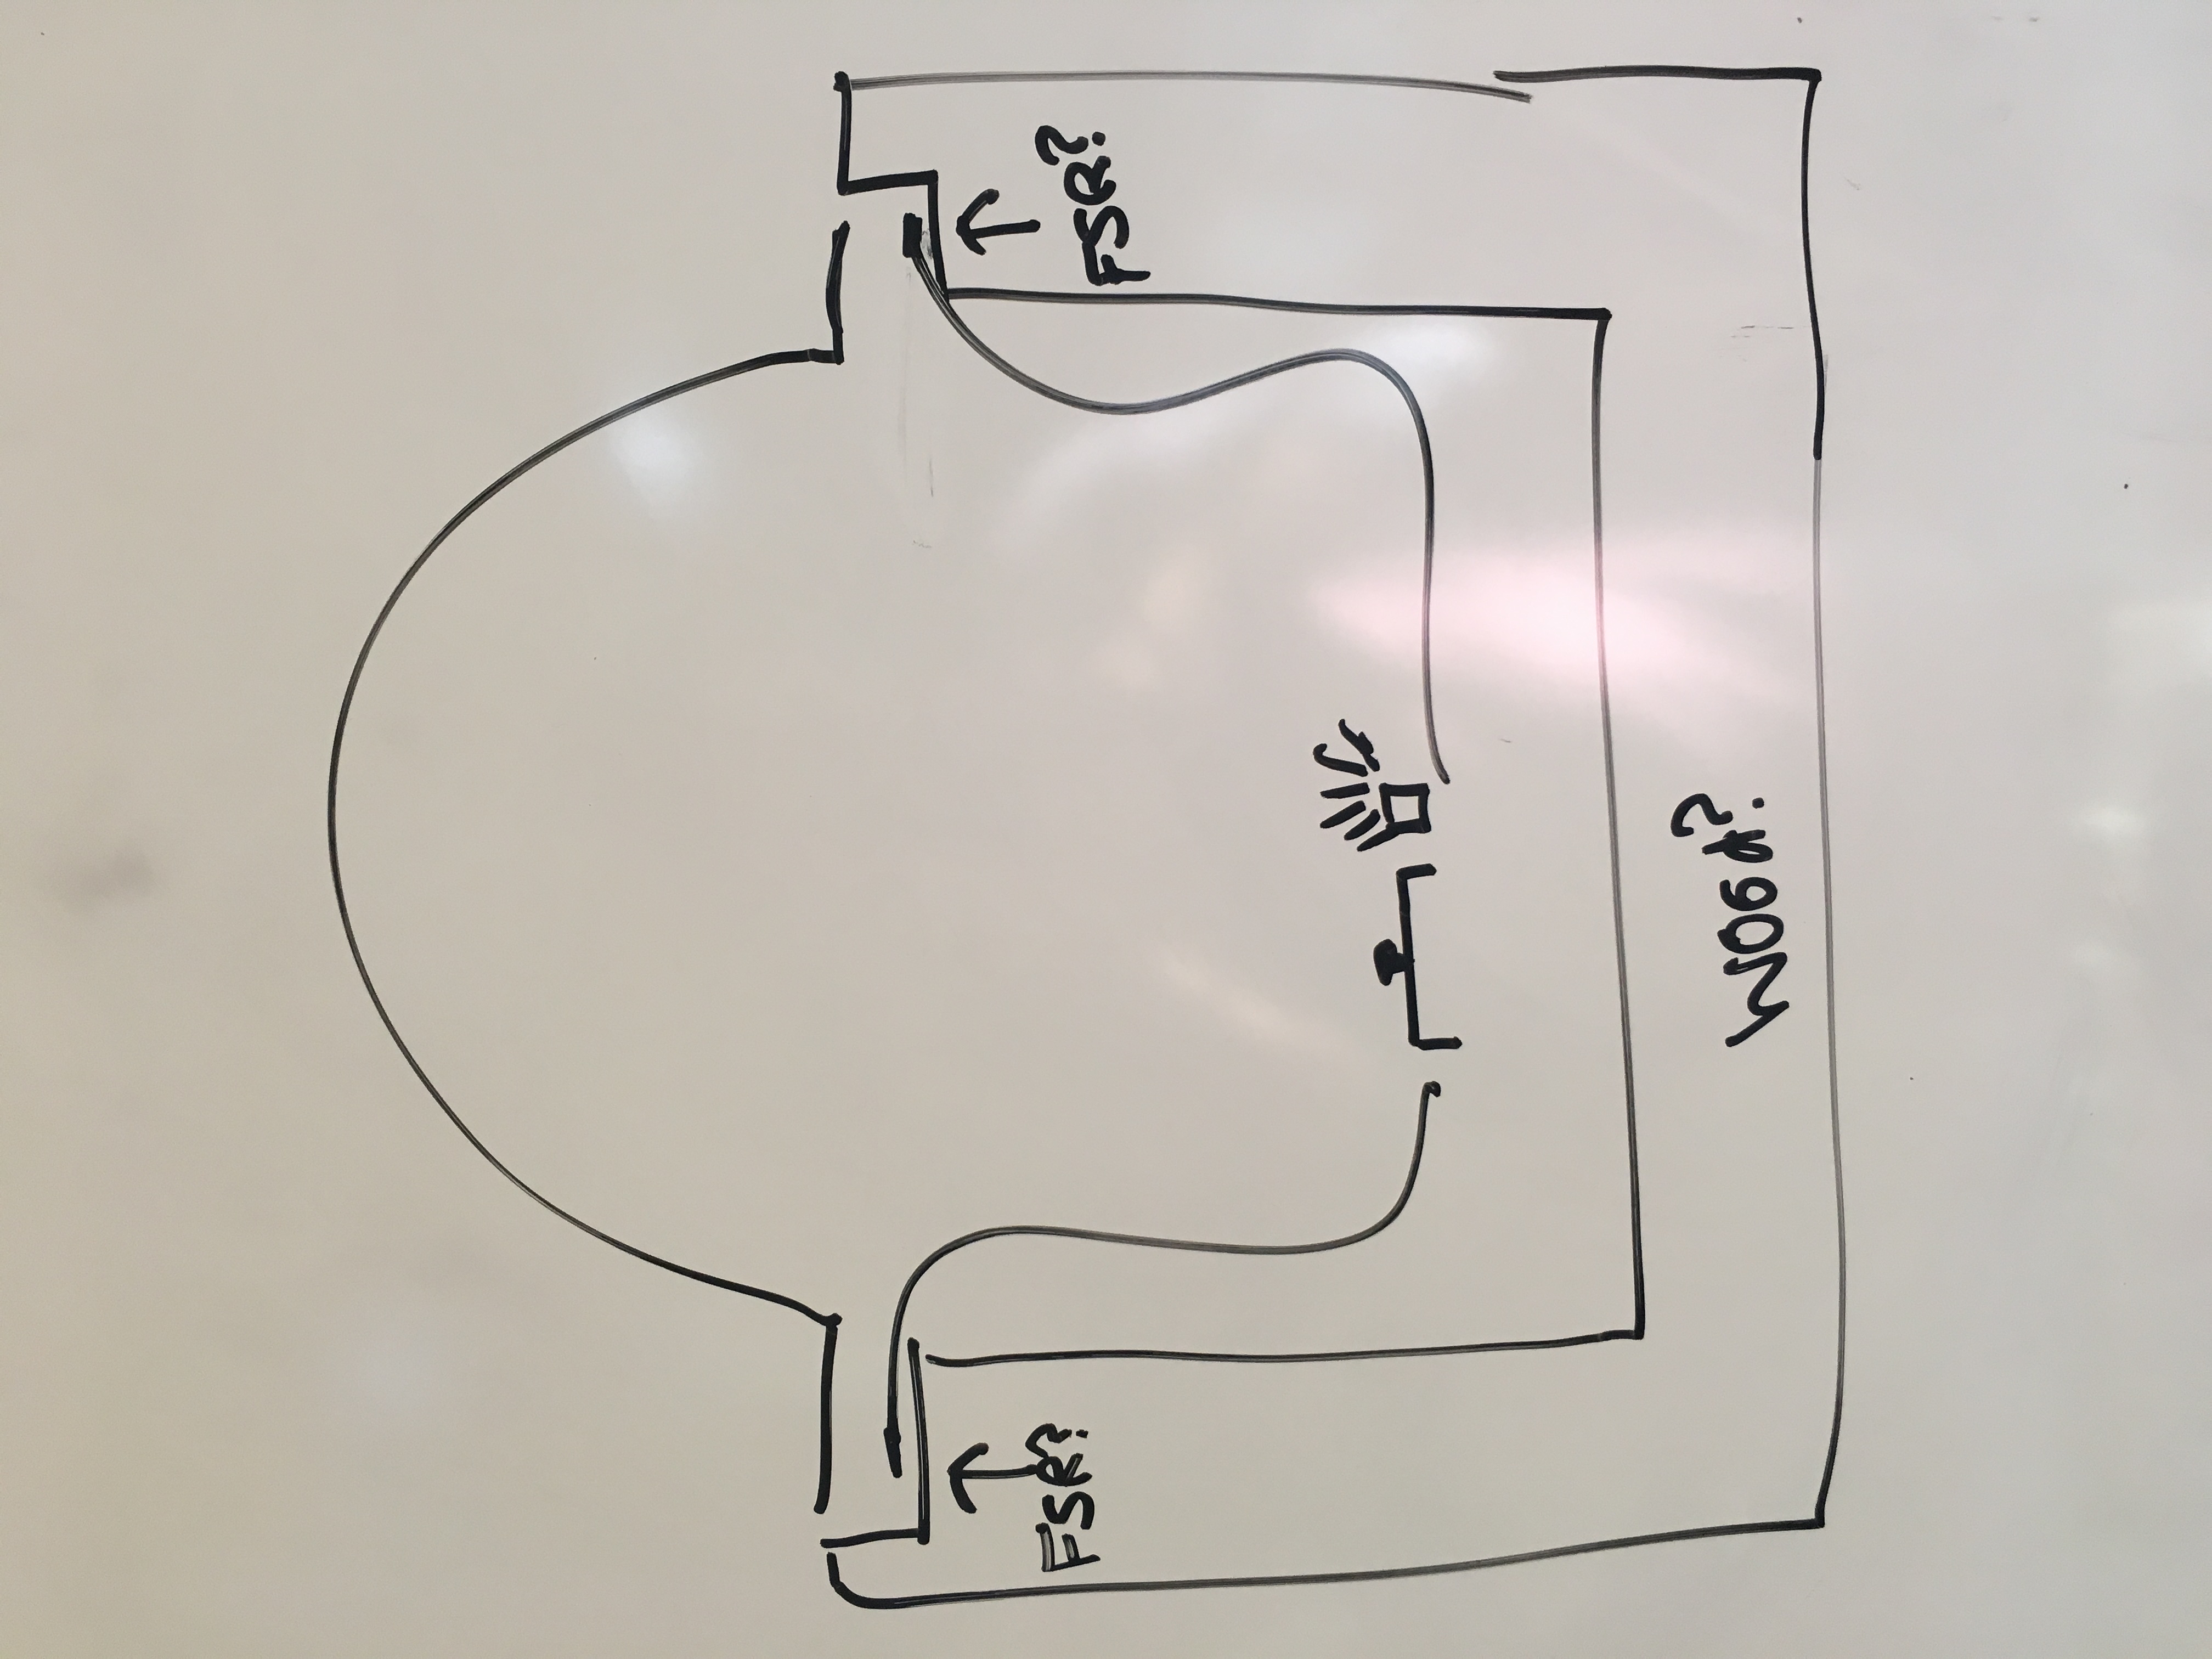 FSR?
FSR?
WOOd?